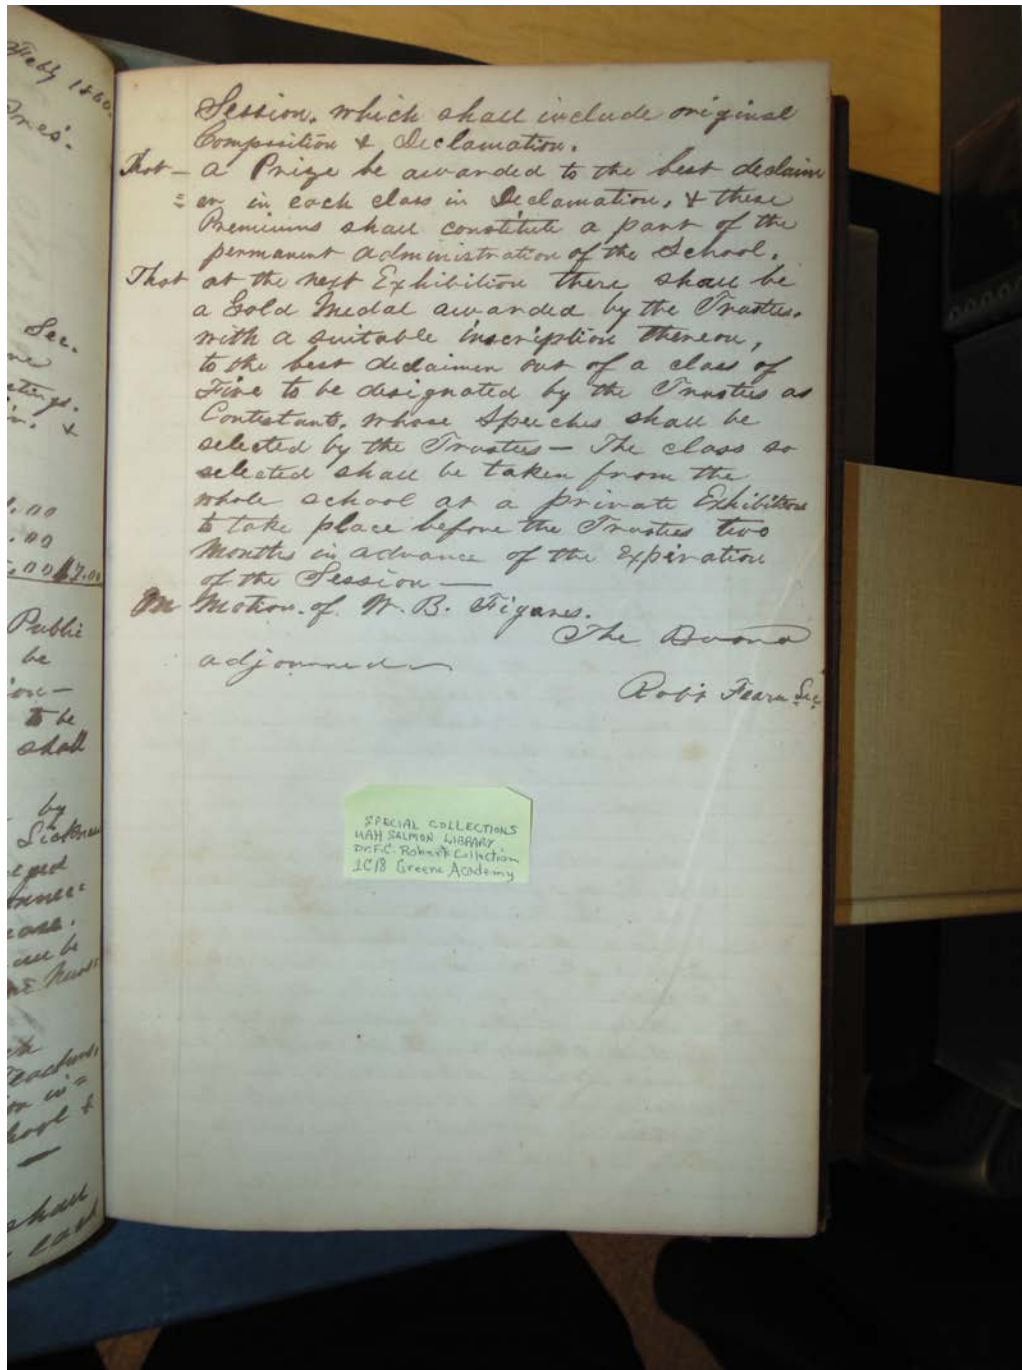 Feby 1860.
Pres.
Sec.
&
.00
.00
.00 17.00
Public
be
to be
shall
by
Sickness
be
shall
Session. which shall include original
Composition & Declamation.
That — a Prize be awarded to the best declaim
= er in each class in Declamation, & these
Premiums shall constitute a part of the
permanent administration of the School.
That at the next Exhibition there shall be
a Gold Medal awarded by the Trustees.
with a suitable inscription thereon,
to the best declaimer out of a class of
Five to be designated by the Trustees as
Contestants. whose Speeches shall be
selected by the Trustees — The class so
selected shall be taken from the
whole school at a private Exhibition
to take place before the Trustees two
Months in advance of the Expiration
of the Session —
On Motion. of W. B. Figures.
The Board
adjourned —
Robt Fearn Sec
SPECIAL COLLECTIONS
UAH SALMON LIBRARY
Dr. F.C. Robert Collection
1C18 Greene Academy